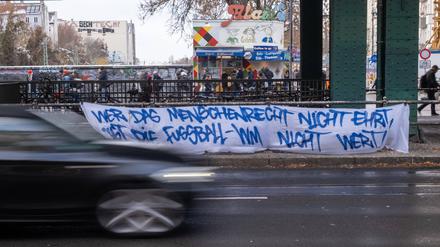 WER DAS MENSCHENRECHT NICHT EHRT,
IST DIE FUSSBALL-WM NICHT WERT!